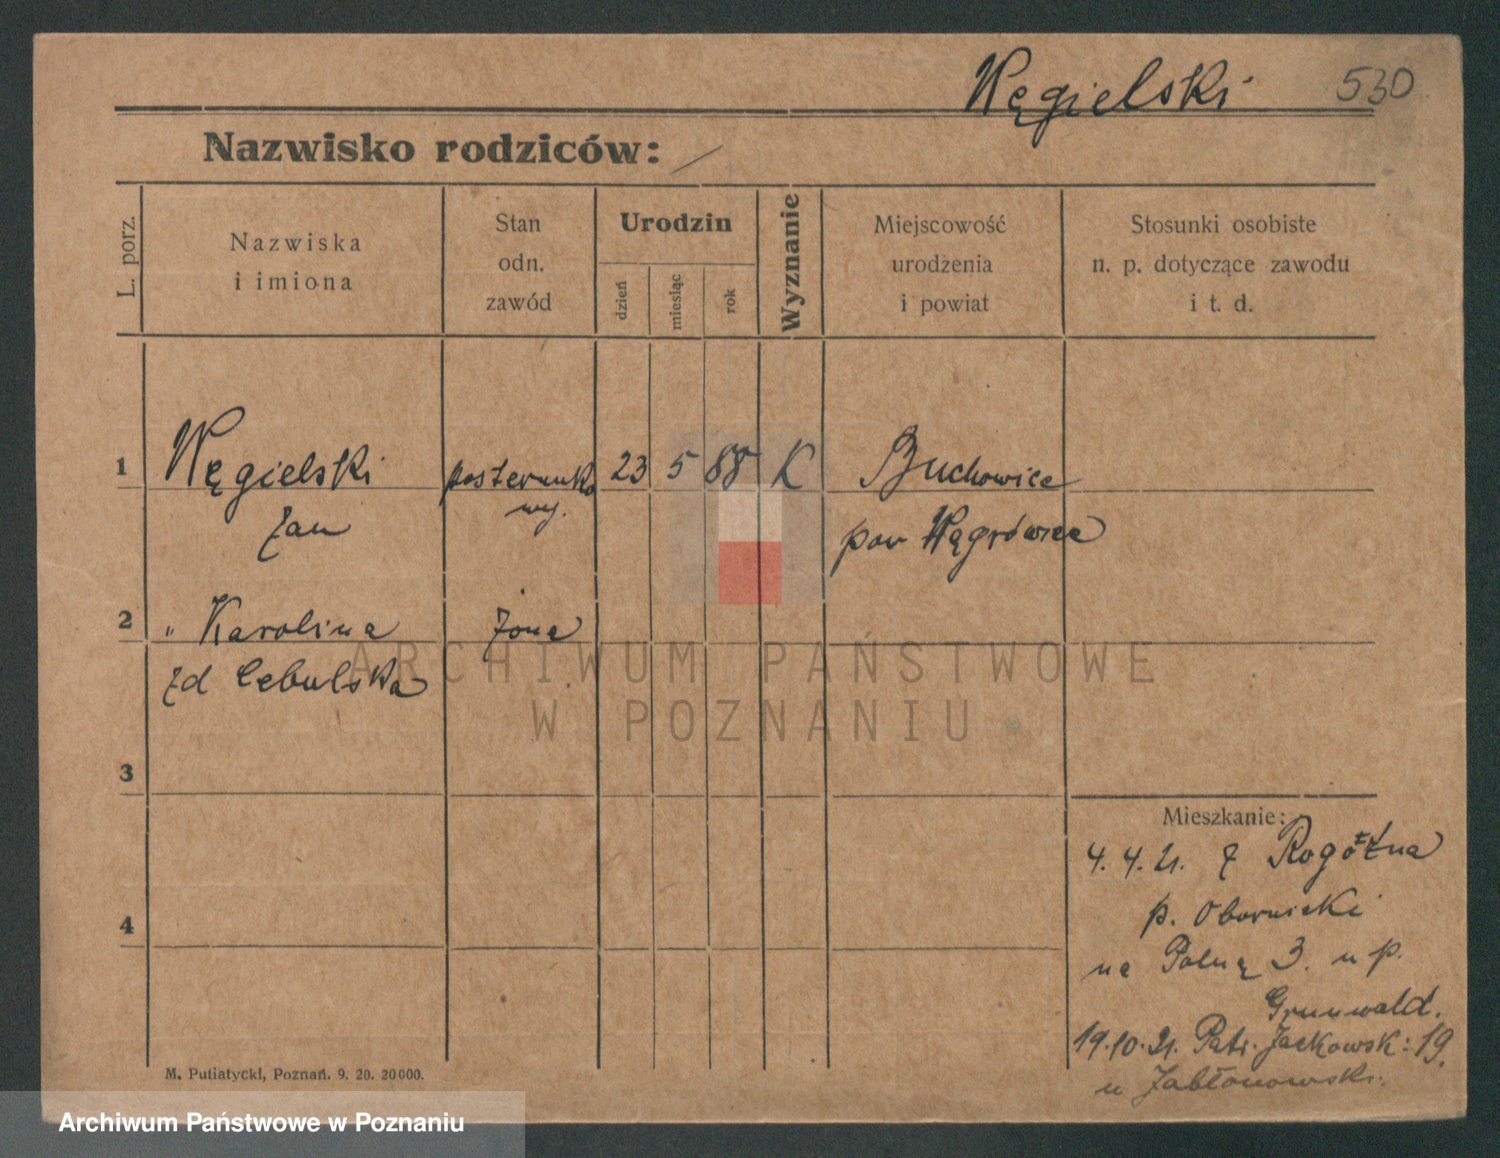 Węgielski 530
Nazwisko rodziców: /
L. porz.
Nazwiska
i imiona
Stan
odn.
zawód
Urodzin
dzień
miesiąc
rok
Wyznanie
Miejscowość
urodzenia
i powiat
Stosunki osobiste
n. p. dotyczące zawodu
i t. d.
1 Węgielski posterunko 23 5 88 K Buchowice
Jan wy. pow Wągrówiec
2 " Karolina żona
zd Cebulska
3
4
Mieszkanie:
4. 4. 21. z Rogoźna
p. Obornicki
na Polną 3. u p.
Grunwald.
19.10.21. Patr. Jackowsk: 19.
u Jabłonowski.
M. Putiatycki, Poznań. 9. 20. 20000.
ARCHIWUM PAŃSTWOWE
W POZNANIU
Archiwum Państwowe w Poznaniu